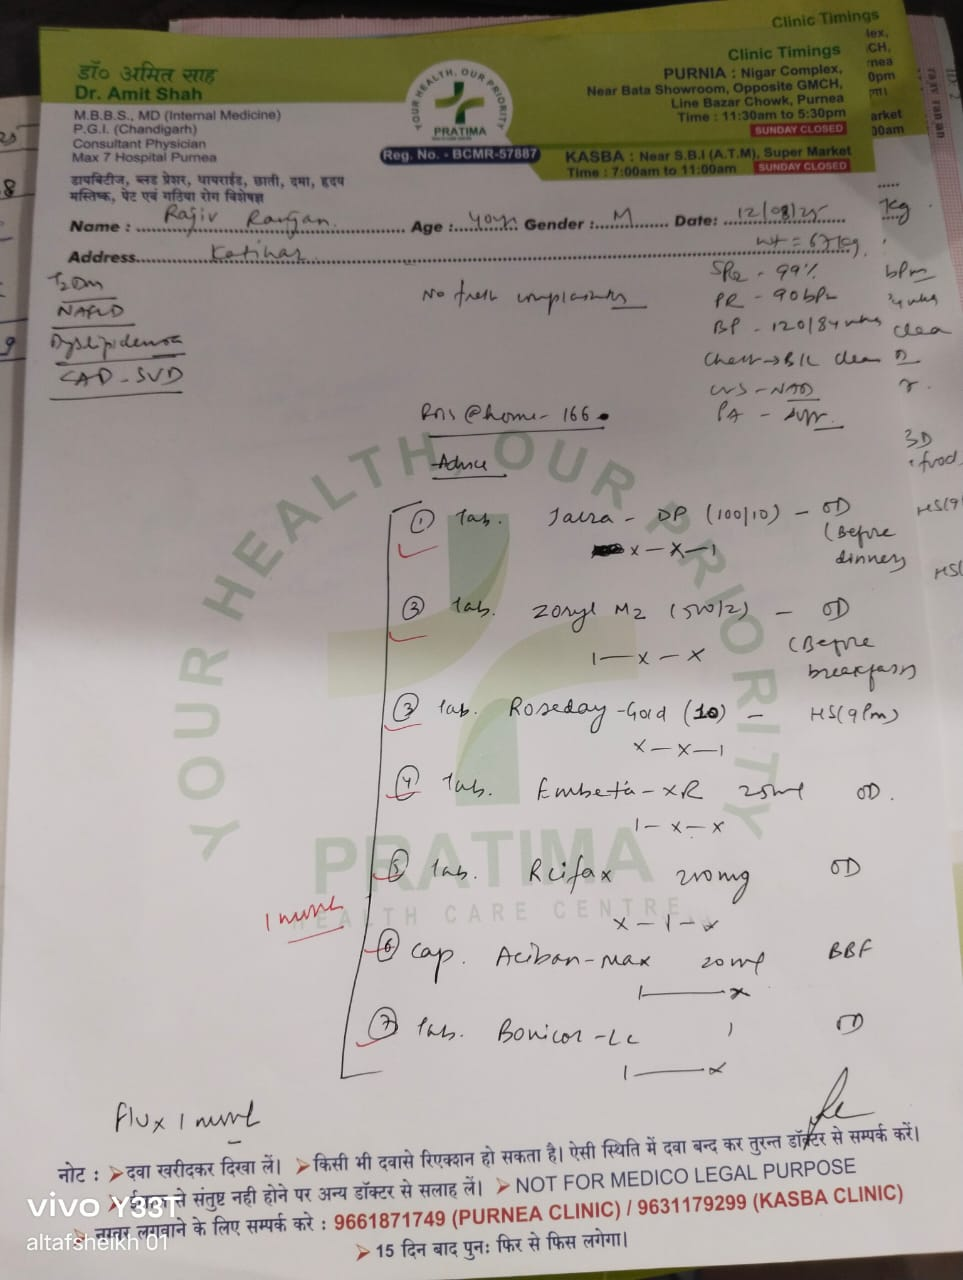 Clinic Timings
डॉ० अमित साह
Dr. Amit Shah
M.B.B.S., MD (Internal Medicine)
P.G.I. (Chandigarh)
Consultant Physician
Max 7 Hospital Purnea
डायबिटीज, ब्लड प्रेशर, थायराईड, छाती, दमा, हृदय
मस्तिष्क, पेट एवं गठिया रोग विशेषज्ञ
YOUR HEALTH, OUR PRIORITY
PRATIMA
Reg. No. - BCMR-57887
Clinic Timings
PURNIA : Nigar Complex,
Near Bata Showroom, Opposite GMCH,
Line Bazar Chowk, Purnea
Time : 11:30am to 5:30pm
SUNDAY CLOSED
KASBA : Near S.B.I (A.T.M), Super Market
Time : 7:00am to 11:00am SUNDAY CLOSED
Name : Rajiv Ranjan. Age : 40yr Gender : M Date: 12/08/25
Address Katihar
wt = 67 kg
T2DM
NAFLD
Dyslipidemia
CAD - SVD
No fresh complaints
SPO2 - 99%
PR - 90 bpm
BP - 120/84
Chest → B/L clear
CVS - NAD
PA -
RBS @ home - 166
Advice
① Tab. DP (100/10) - OD
(Before dinner)
x - x - 1
② Tab. Zoryl M2 (500/2) - OD
(Before breakfast)
1 - x - x
③ Tab. Roseday-Gold (10) - HS (9pm)
x - x - 1
④ Tab. Embeta-XR 25mg OD.
1 - x - x
⑤ Tab. Rcifax 200mg OD
x - 1 - x
⑥ Cap. Aciban-Max 20mg BBF
1 — x
⑦ Tab. Bonicor-LC OD
1 — x
YOUR HEALTH, OUR PRIORITY
PRATIMA
HEALTH CARE CENTRE
नोट : ➤दवा खरीदकर दिखा लें। ➤किसी भी दवासे रिएक्शन हो सकता है। ऐसी स्थिति में दवा बन्द कर तुरन्त डॉक्टर से सम्पर्क करें।
से संतुष्ट नही होने पर अन्य डॉक्टर से सलाह लें। ➤ NOT FOR MEDICO LEGAL PURPOSE
लगवाने के लिए सम्पर्क करे : 9661871749 (PURNEA CLINIC) / 9631179299 (KASBA CLINIC)
➤ 15 दिन बाद पुनः फिर से फिस लगेगा।
vivo Y33T
altafsheikh 01